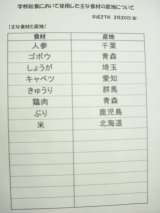 学校給食において使用した主な食材の産地について
平成27年 2月20日(金)
【主な食材と産地】
食材 産地
人参 千葉
ゴボウ 青森
しょうが 埼玉
キャベツ 愛知
きゅうり 群馬
鶏肉 青森
ぶり 鹿児島
米 北海道